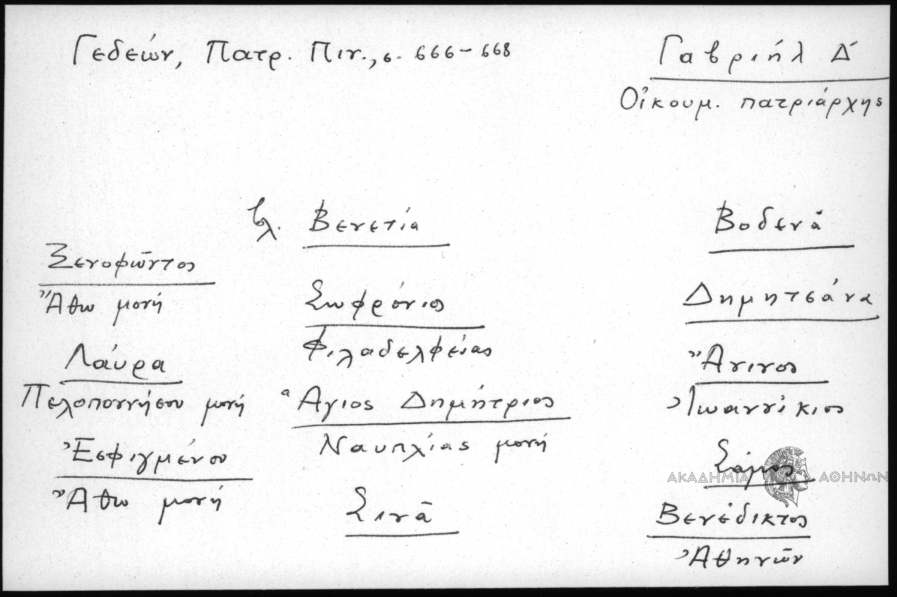 Γεδεών, Πατρ. Πιν., σ. 666-668
Γαβριήλ Δ´
Οἰκουμ. πατριάρχης
βλ. Βενετία
Βοδενᾶ
Ξενοφῶντος
Ἄθω μονή
Σωφρόνιος
Φιλαδελφείας
Δημητσάνα
Λαύρα
Πελοποννήσου μονή
Ἅγιος Δημήτριος
Ναυπλίας μονή
Ἄνινος
Ἰωαννίκιος
Ἐσφιγμένου
Ἄθω μονή
Σινᾶ
Σάμος
ΑΚΑΔΗΜΙΑ ΑΘΗΝΩΝ
Βενέδικτος
Ἀθηνῶν